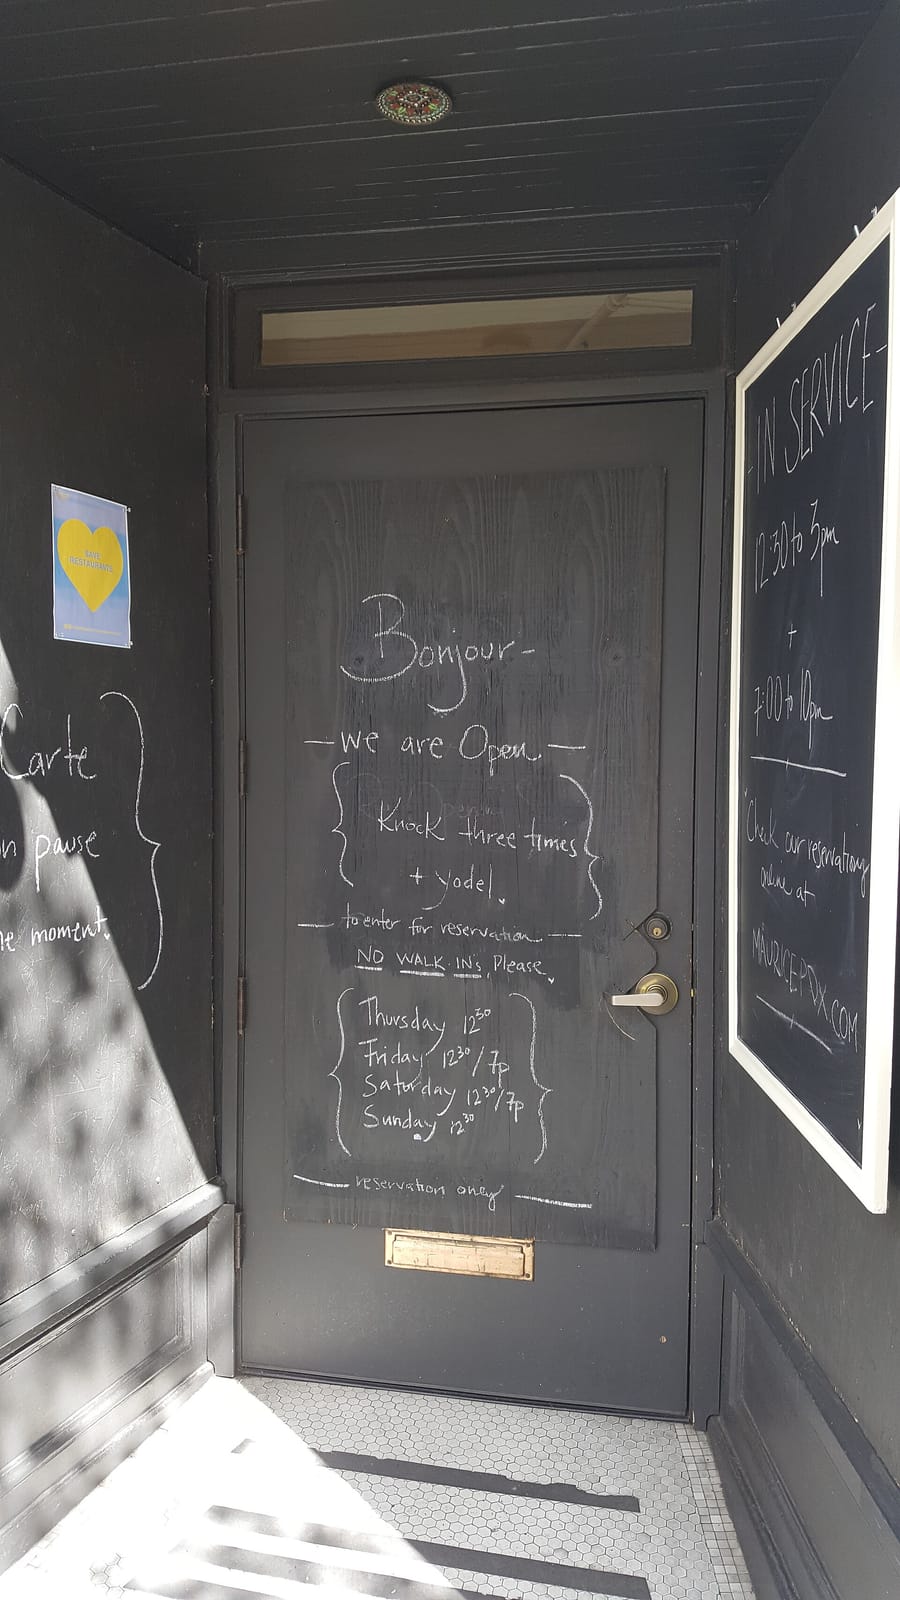 SAVE
RESTAURANTS
Carte
on pause
he moment.
Bonjour-
- we are Open -
Knock three times
+ yodel.
- to enter for reservation -
NO WALK-IN's, Please
Thursday 12³⁰
Friday 12³⁰/7p
Saturday 12³⁰/7p
Sunday 12³⁰
reservation only
-IN SERVICE-
12:30 to 3pm
+
7:00 to 10pm
Check our reservations
online at
MAURICEPDX.COM